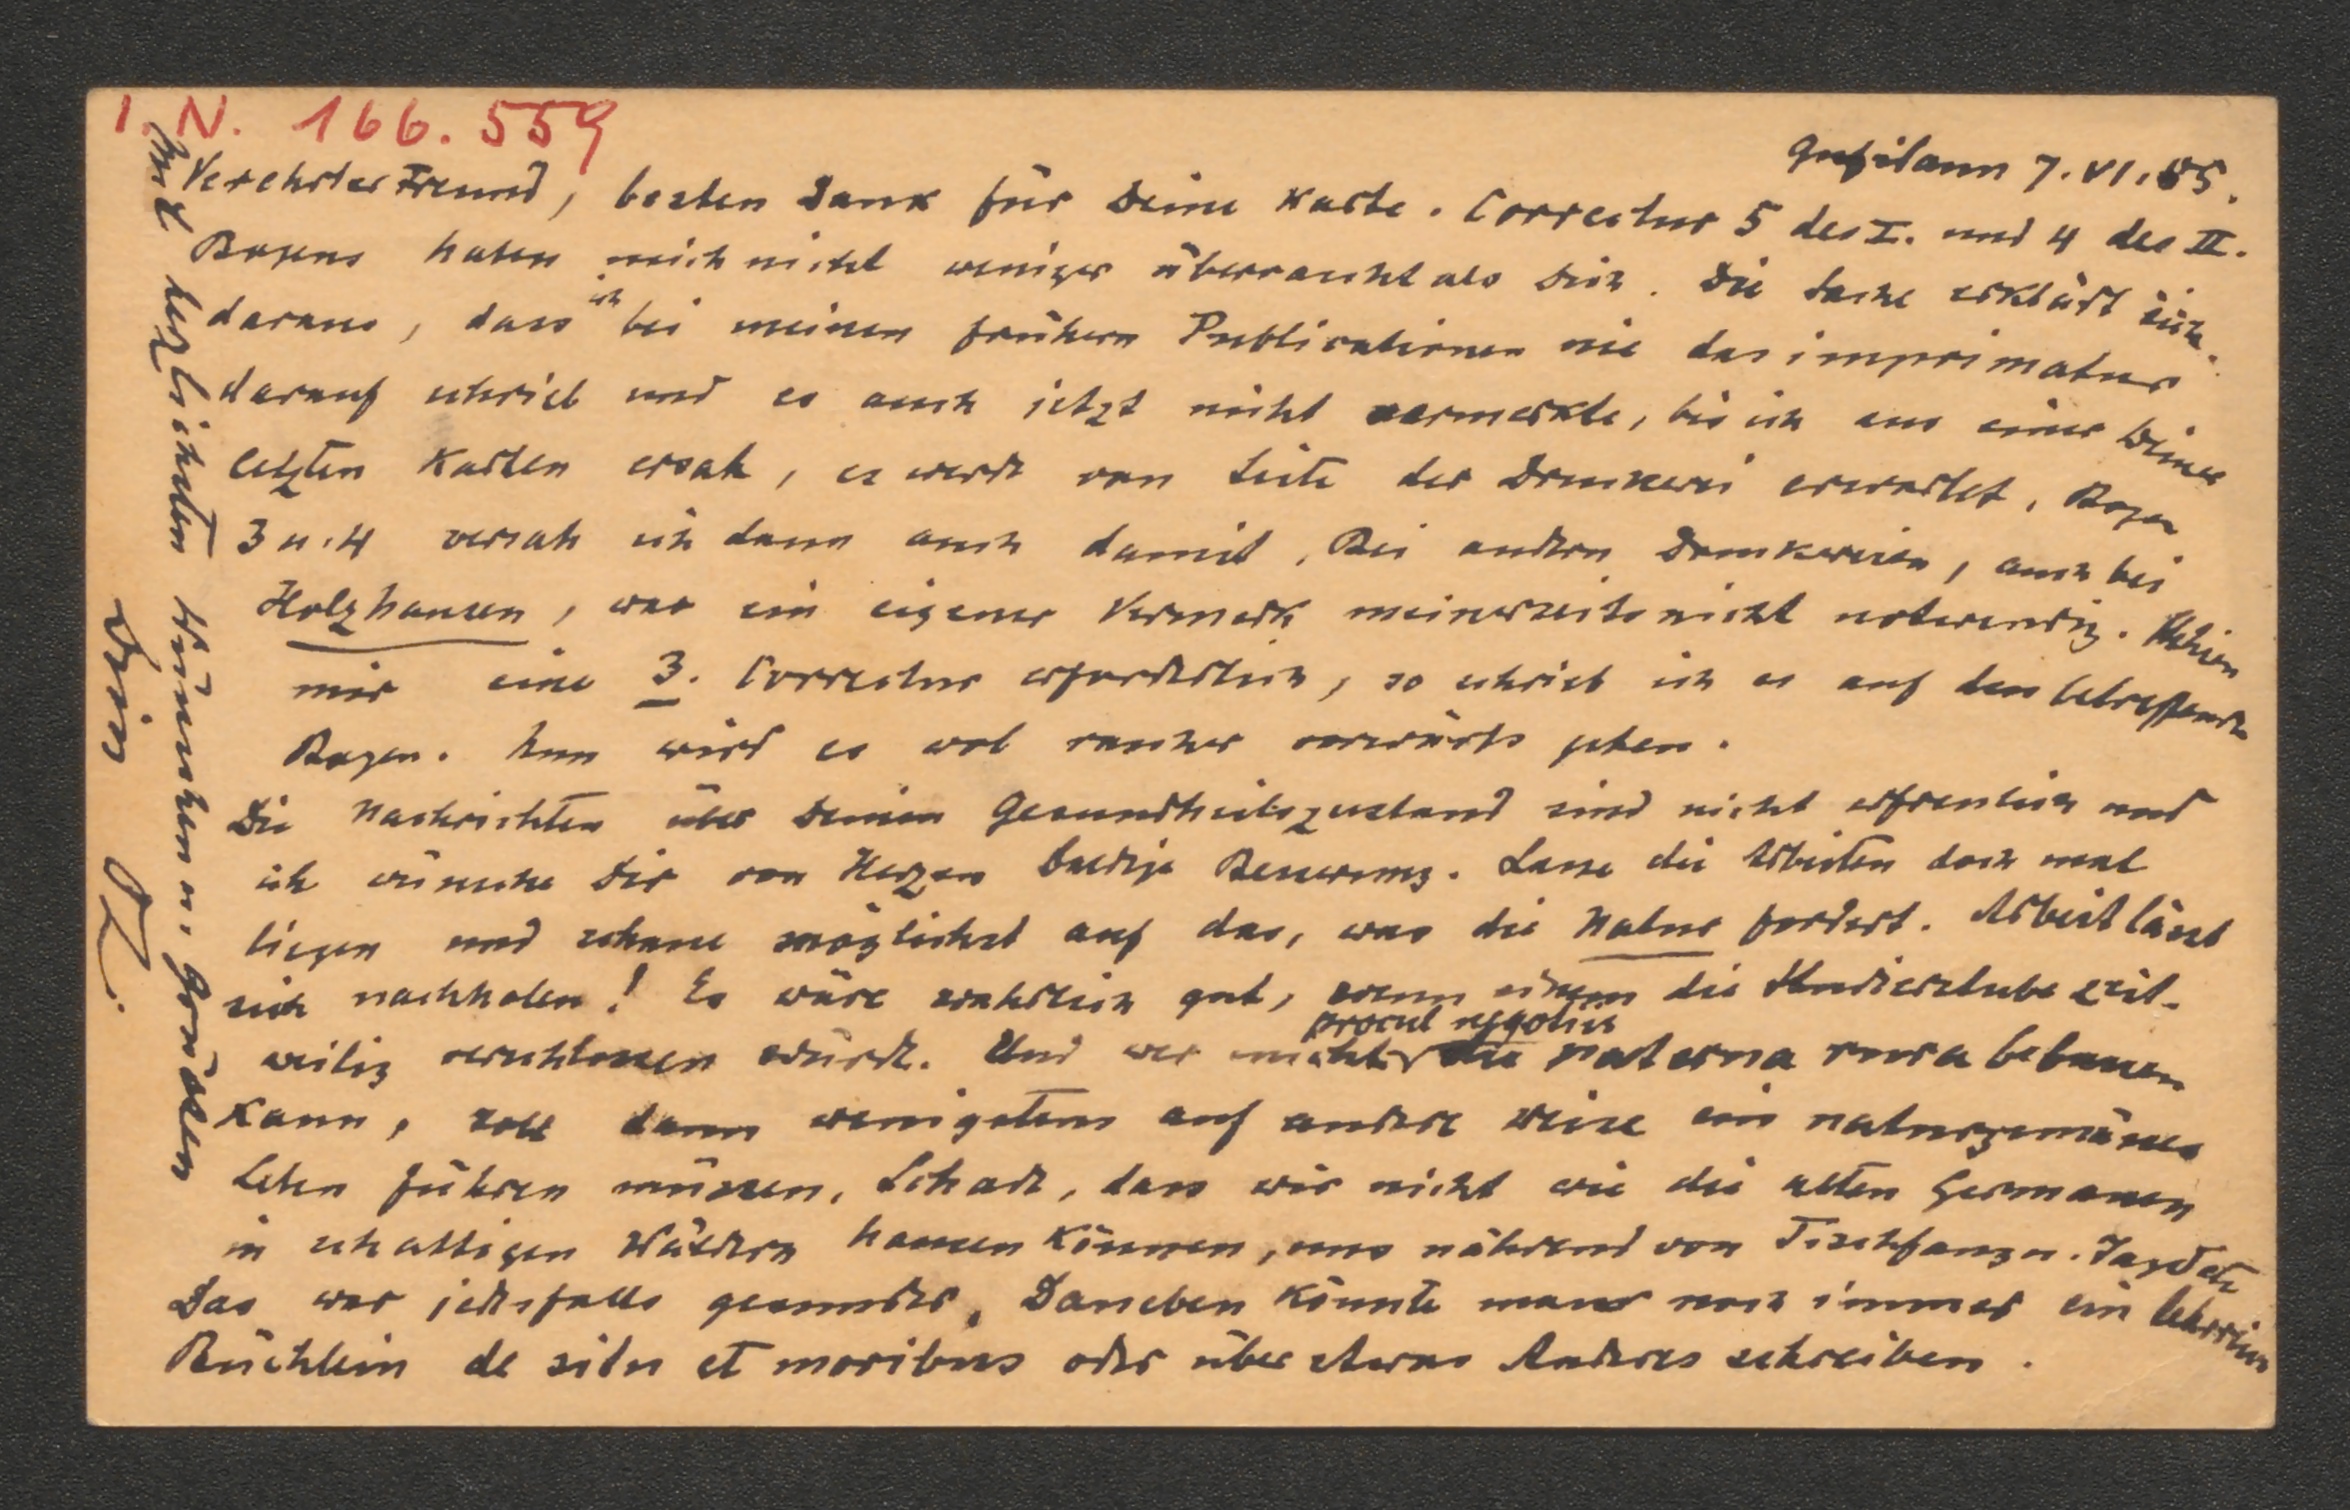 I. N. 166.559
Gufidaun 7. VI. 85.
Verehrter Freund, besten Dank für Deine Karte. Correctur 5 des I. und 4 des II.
Bogens haben mich nicht weniger überrascht als Dich. Die Sache erklärt sich
daraus, dass ich bei meinen frühern Publicationen nie das imprimatur
darauf schrieb und es auch jetzt nicht vermerkte, bis ich aus einer Deiner
letzten Karten ersah, es werde von Seite der Druckerei erwartet. Bogen
3 u. 4 versah ich dann auch damit. Bei andern Druckereien, auch bei
Holzhausen, war ein eigener Vermerk meinerseits nicht notwendig. Schien
mir eine 3. Correctur erforderlich, so schrieb ich es auf den betreffenden
Bogen. Nun wird es wol rascher vorwärts gehen.
Die Nachrichten über Deinen Gesundheitszustand sind nicht erfreulich und
ich wünsche Dir von Herzen baldige Besserung. Lasse die Arbeiten doch mal
liegen und schaue möglichst auf das, was die Natur fordert. Arbeit lässt
sich nachholen! Es wäre wahrlich gut, wenn einem die Studierstube zeit-
weilig verschlossen würde. Und wer nicht procul negotiis die paterna rura bebauen
kann, soll dann wenigstens auf andere Weise ein naturgemässes
Leben führen müssen. Schade, dass wir nicht wie die alten Germanen
in schattigen Wäldern hausen können, uns nährend von Fischfang u. Jagd etc
Das war jedenfalls gesunder. Daneben könnte man noch immer ein lehrreiches
Büchlein de situ et moribus oder über etwas Anderes schreiben.
Mit herzlichsten Wünschen u. Grüssen
Dein